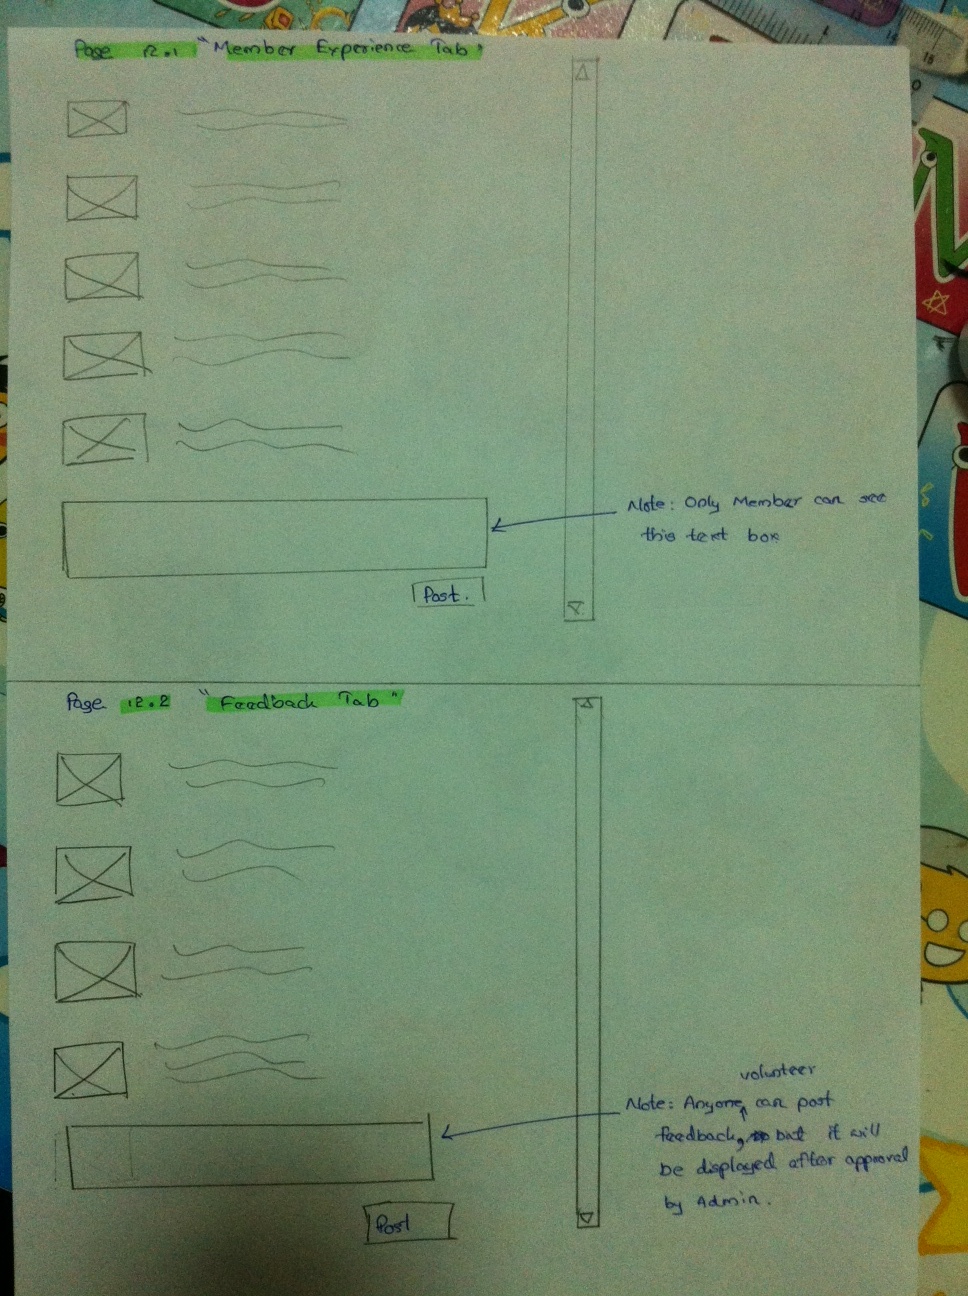 Page 12.1 "Member Experience Tab"
Note: Only Member can see
this text box
Post.
Page 12.2 "Feedback Tab"
volunteer
Note: Anyone can post
feedback, but it will
be displayed after approval
by Admin.
Post